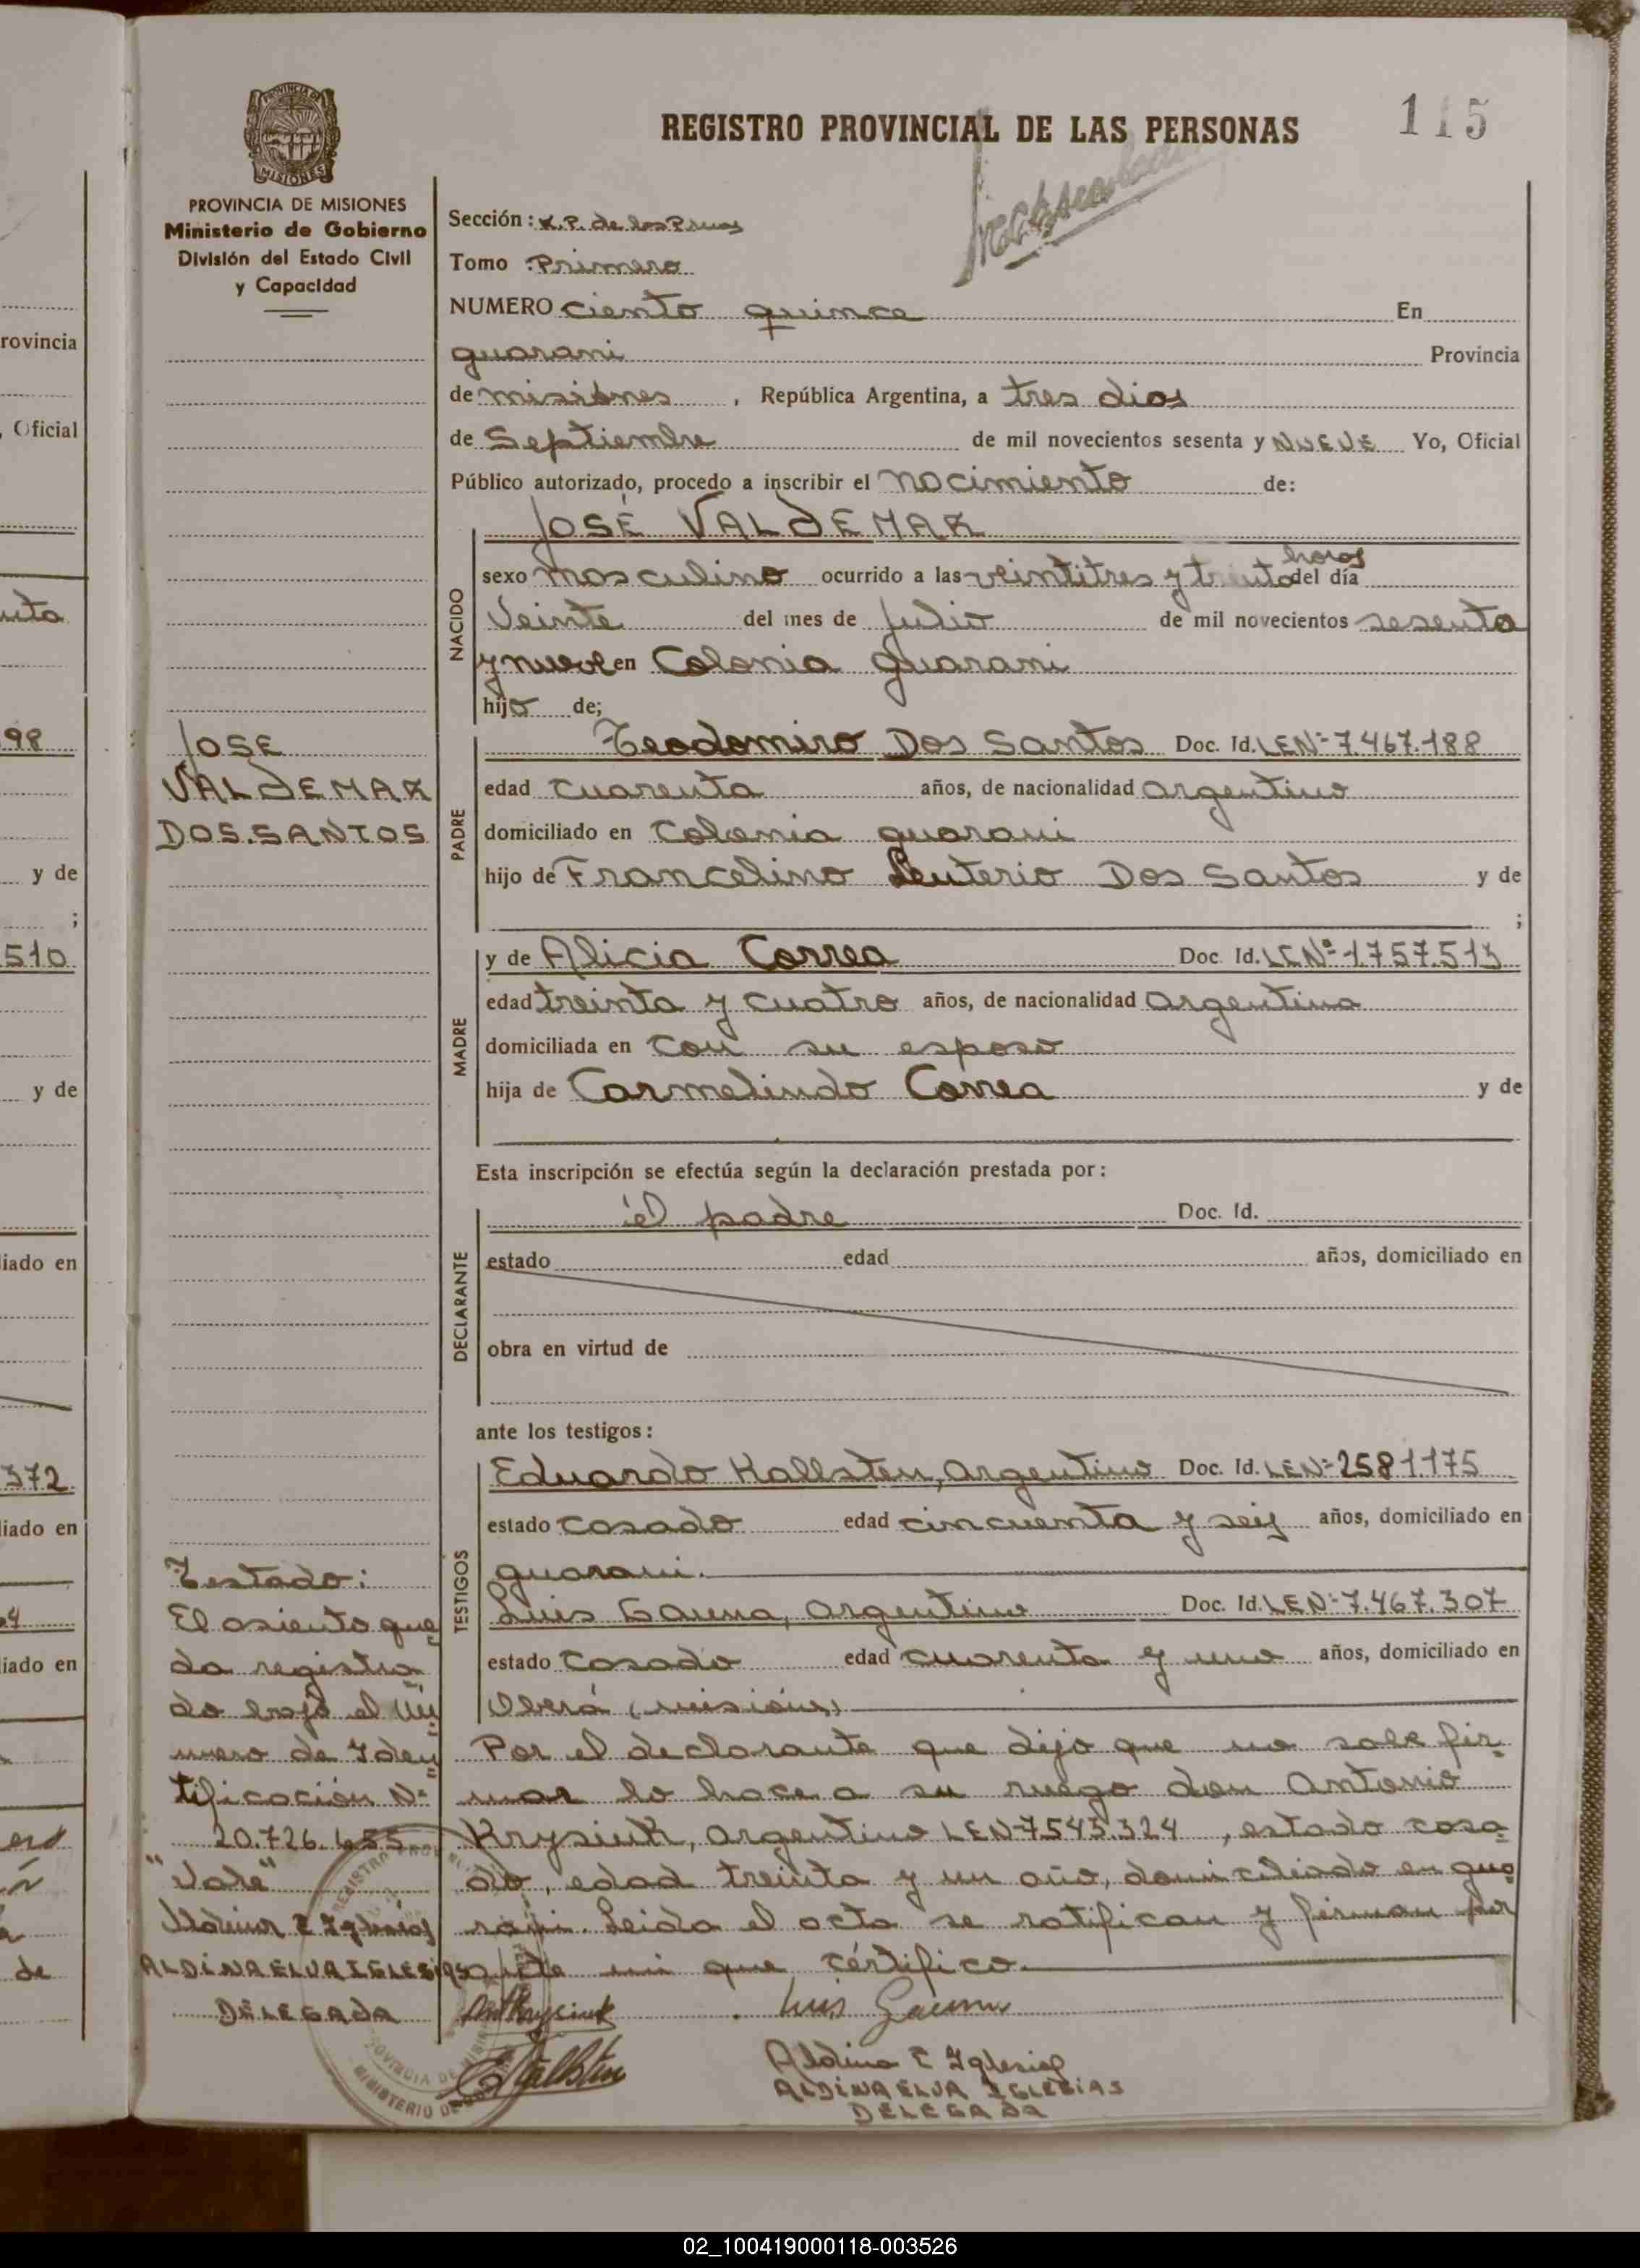 115
REGISTRO PROVINCIAL DE LAS PERSONAS
PROVINCIA DE MISIONES
Ministerio de Gobierno
División del Estado Civil
y Capacidad
Sección: R.P. de las Prnas
Tomo : Primero
NUMERO ciento quince En
guarani Provincia
de misiones, República Argentina, a tres dias
de Septiembre de mil novecientos sesenta y NUEVE Yo, Oficial
Público autorizado, procedo a inscribir el nacimiento de:
JOSÉ VALDEMAR
NACIDO
horas
sexo masculino ocurrido a las veintitres y treinta del día
Veinte del mes de Julio de mil novecientos sesenta
y nueve en Colonia guarani
hijo de;
PADRE
Teodomiro Dos Santos Doc. Id. LENº 7.467.188
edad cuarenta años, de nacionalidad argentino
domiciliado en Colonia guarani
hijo de Francelino Leuterio Dos Santos y de
;
MADRE
y de Alicia Correa Doc. Id. LENº 1.757.513
edad treinta y cuatro años, de nacionalidad argentina
domiciliada en con su esposo
hija de Carmelindo Correa y de
Esta inscripción se efectúa según la declaración prestada por:
DECLARANTE
el padre Doc. Id.
estado edad años, domiciliado en
obra en virtud de
ante los testigos:
TESTIGOS
Eduardo Hallsten, argentino Doc. Id. LENº 2581175
estado casado edad cincuenta y seis años, domiciliado en
guarani.
Luis Gauna, argentino Doc. Id. LENº 7.467.307
estado casado edad cuarenta y uno años, domiciliado en
Oberá (misiones)
Por el declarante que dijo que no sabe fir-
mar lo hace a su ruego don Antonio
Krysiuk, argentino LEN 7543.324, estado casa-
do, edad treinta y un año, domiciliado en gua-
rani. Leida el acta se ratifican y firman por
ante mi que certifico.
Luis Gauna
Aldina E Iglesias
ALDINA ELVA IGLESIAS
DELEGADA
JOSE
VALDEMAR
DOS.SANTOS
Testado:
El asiento que-
da registra-
do bajo el Nú-
mero de Iden-
tificación Nº
20.726.655
"Vale"
Aldina E Iglesias
ALDINA ELVA IGLESIAS
DELEGADA
rovincia
, Oficial
98
y de
;
510
y de
liado en
372
liado en
liado en
de
02_100419000118-003526